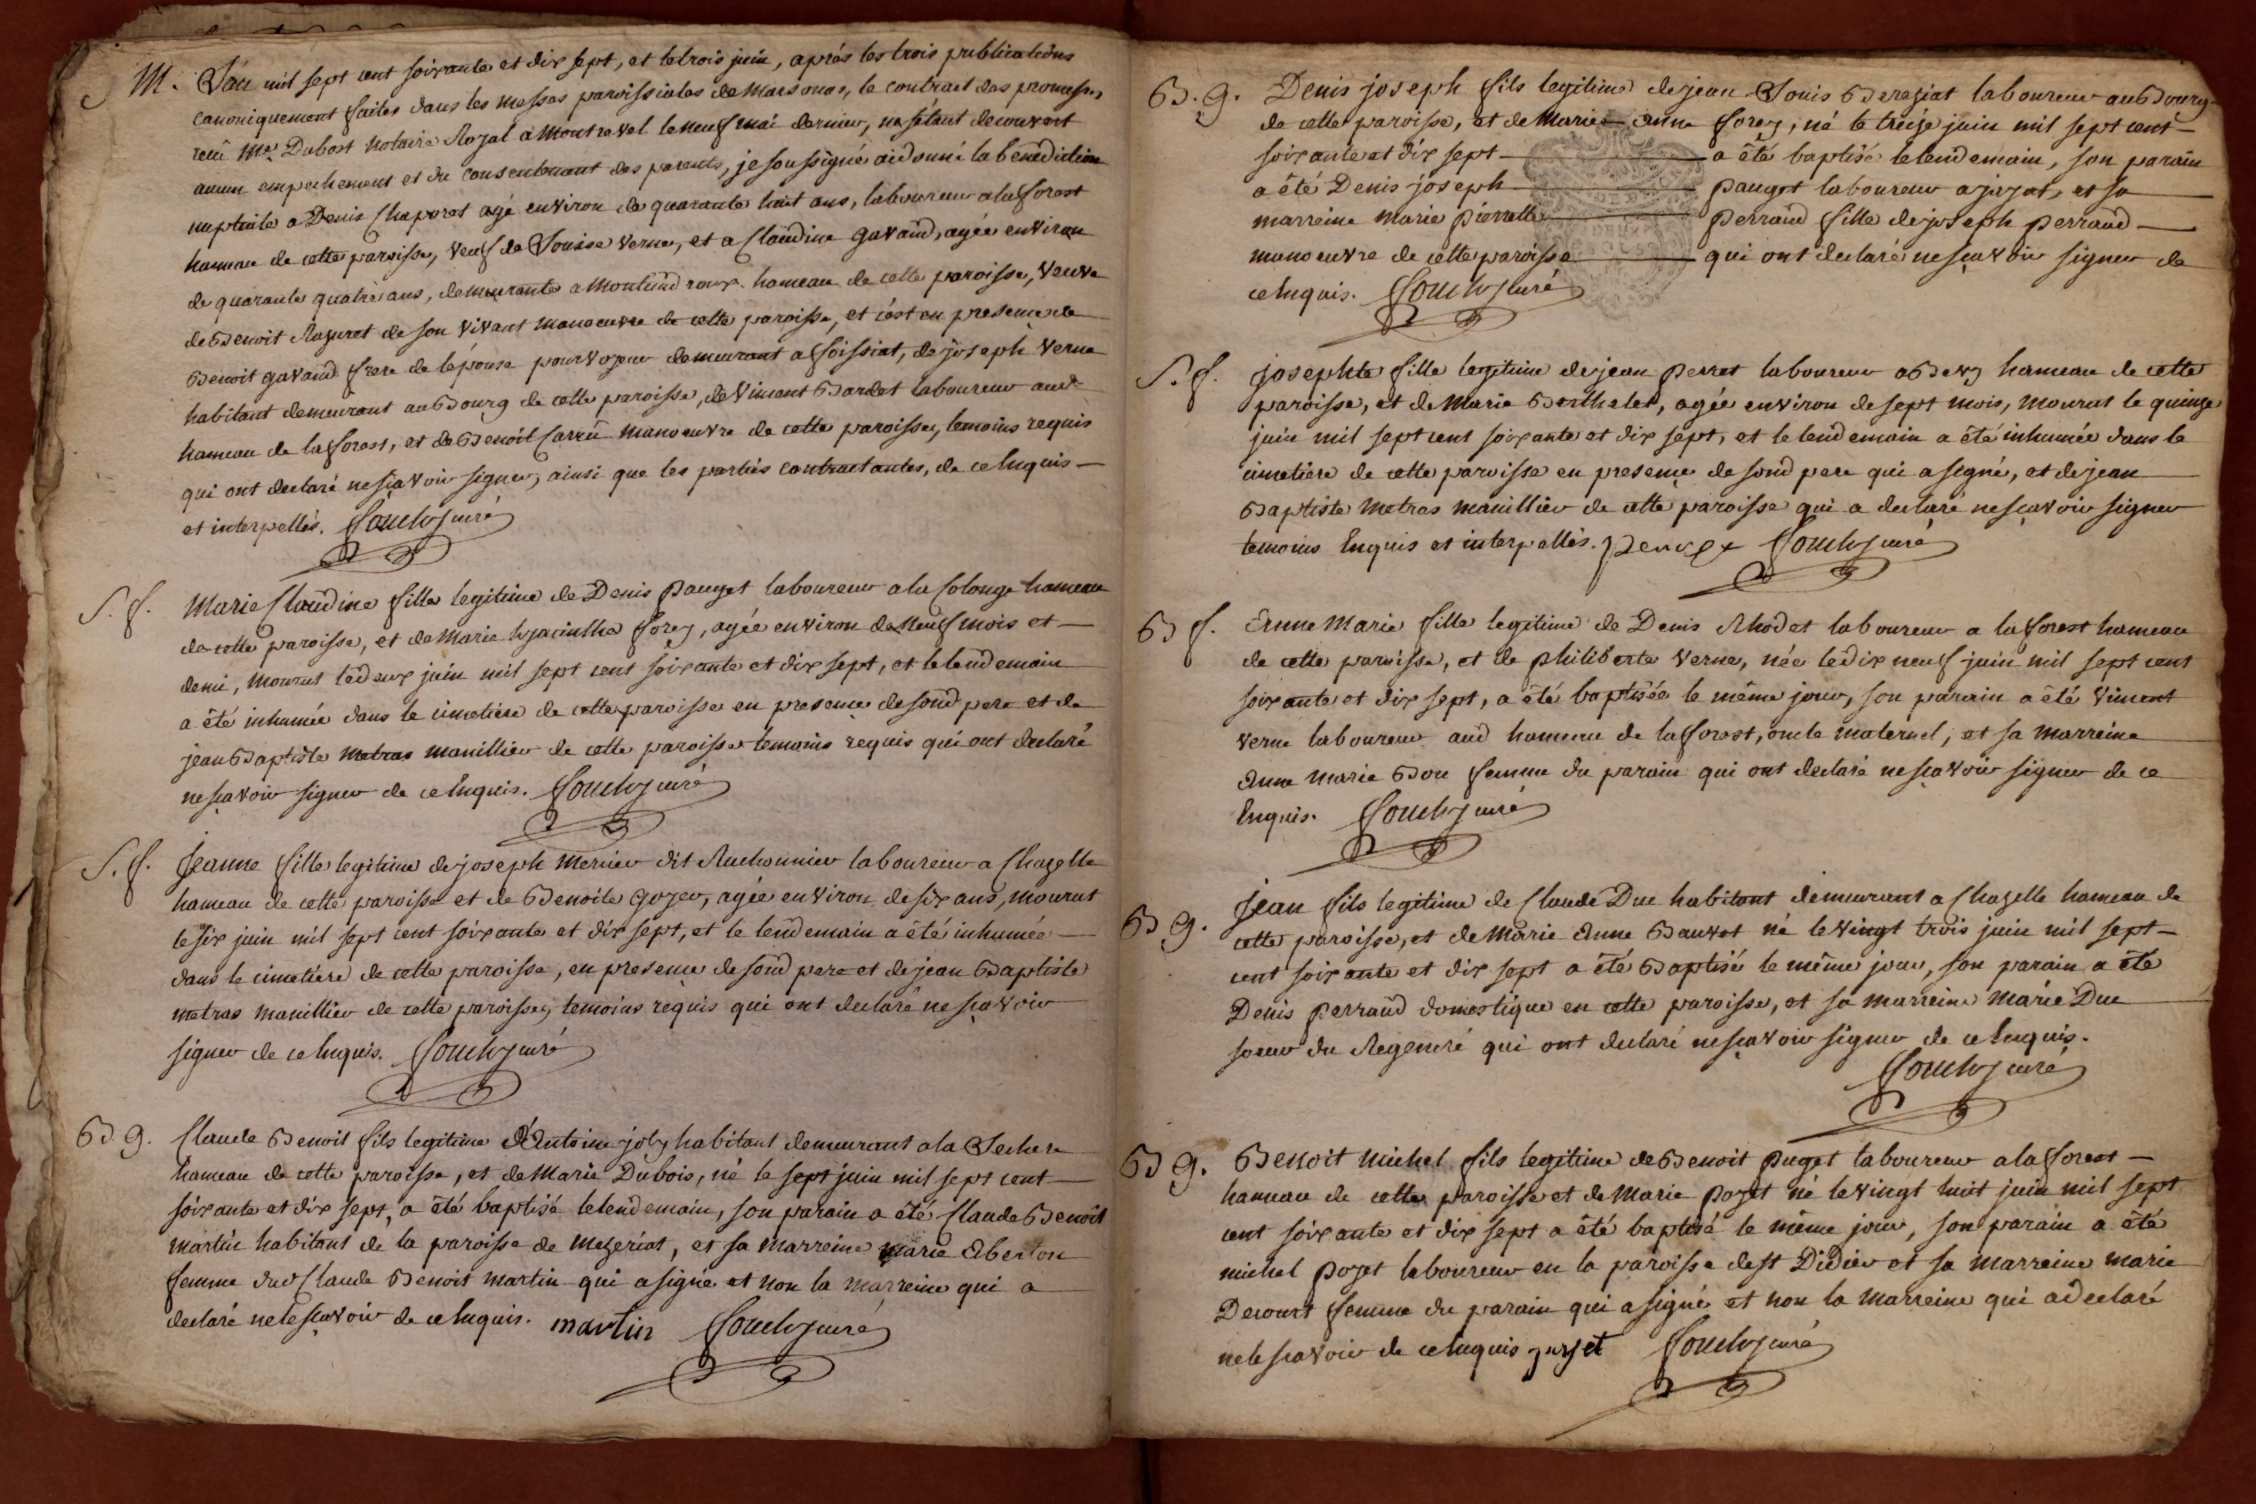 M. L'an mil sept cent soixante et dix sept, et le trois juin, après les trois publications
canoniquement faites dans les messes paroissiales de Marsonas, le contract des promesses
reçû Me. Dubost notaire Royal à Montrevel le neuf mai dernier, ne s'étant decouvert
aucun empechement et du consentement des parents, je soussigné ai donné la benediction
nuptiale a Denis Chaporet agé environ de quarante huit ans, laboureur a la forest
hameau de cette paroisse, veuf de Louise Verne, et a Claudine gavand, agée environ
de quarante quatre ans, demeurante a hameau de cette paroisse, veuve
de Benoit Razuret de son vivant manoeuvre de cette paroisse, et c'est en presence de
Benoit gavand frere de l'épouse pourvoyeur demeurant a foissiat, de joseph Verne
habitant demeurant au Bourg de cette paroisse, de Vincent Bardet laboureur aud.
hameau de la forest, et de Benoit Carrû manoeuvre de cette paroisse, temoins requis
qui ont declaré ne sçavoir signer, ainsi que les parties contractantes, de ce Enquis
et interpellés. curé
S. f. Marie Claudine fille legitime de Denis Pauget laboureur a la Colonge hameau
de cette paroisse, et de Marie hyacinthe forey, agée environ de neuf mois et
demi, mourut le deux juin mil sept cent soixante et dix sept, et le lendemain
a été inhumée dans le cimetiere de cette paroisse en presence de sond pere et de
jean Baptiste Metras manillier de cette paroisse temoins requis qui ont declaré
ne sçavoir signer de ce Enquis. curé
S. f. Jeanne fille legitime de joseph Mercier dit Ruchonnier laboureur a Chazelle
hameau de cette paroisse et de Benoite Goyer, agée environ de six ans, mourut
le six juin mil sept cent soixante et dix sept, et le lendemain a été inhumée
dans le cimetiere de cette paroisse, en presence de sond pere et de jean Baptiste
metras manillier de cette paroisse, temoins requis qui ont declaré ne sçavoir
signer de ce Enquis. curé
B g. Claude Benoit fils legitime d'Antoine joly habitant demeurant a la
hameau de cette paroisse, et de Marie Dubois, né le sept juin mil sept cent
soixante et dix sept, a été baptisé le lendemain, son parain a été Claude Benoît
martin habitant de la paroisse de Mezeriat, et sa marreine marie
femme dud Claude Benoit martin qui a signé et non la marreine qui a
declaré ne le sçavoir de ce Enquis. martin curé
B. g. Denis joseph fils legitime de jean Louis Bereziat laboureur au Bourg
de cette paroisse, et de Marie Anne forey, né le treize juin mil sept cent
soixante et dix sept a été baptisé le lendemain, son parain
a été Denis joseph pauget laboureur a jayat, et sa
marreine marie Pierrette Perraud fille de joseph Perraud
manoeuvre de cette paroisse qui ont declaré ne sçavoir signer de
ce Enquis. curé
S. f. josephte fille legitime de jean Perret laboureur a hameau de cette
paroisse, et de Marie Berthelet, agée environ de sept mois, mourut le quinze
juin mil sept cent soixante et dix sept, et le lendemain a été inhumée dans le
cimetiere de cette paroisse en presence de sond pere qui a signé, et de jean
Baptiste Metras manillier de cette paroisse qui a declaré ne sçavoir signer
temoins Enquis et interpellés. curé
B f. Anne Marie fille legitime de Denis Rhodet laboureur a la forest hameau
de cette paroisse, et de Philiberte Verne, née le dix neuf juin mil sept cent
soixante et dix sept, a été baptisée le même jour, son parain a été Vincent
Verne laboureur aud hameau de la forest, oncle maternel, et sa marreine
Anne Marie Bon femme du parain qui ont declaré ne sçavoir signer de ce
Enquis. curé
B g. Jean fils legitime de Claude Duc habitant demeurant a Chazelle hameau de
cette paroisse, et de Marie Anne Bauvet né le vingt trois juin mil sept
cent soixante et dix sept a été Baptisé le même jour, son parain a été
Denis Perraud domestique en cette paroisse, et sa marreine Marie Duc
soeur du Regeneré qui ont declaré ne sçavoir signer de ce Enquis.
curé
B g. Benoit Michel fils legitime de Benoit Puget laboureur a la forest
hameau de cette paroisse et de Marie Poget né le vingt huit juin mil sept
cent soixante et dix sept a été baptisé le même jour, son parain a été
michel Poget laboureur en la paroisse de St Didier et sa marreine marie
Decourt femme du parain qui a signé et non la marreine qui a declaré
ne le sçavoir de ce Enquis curé